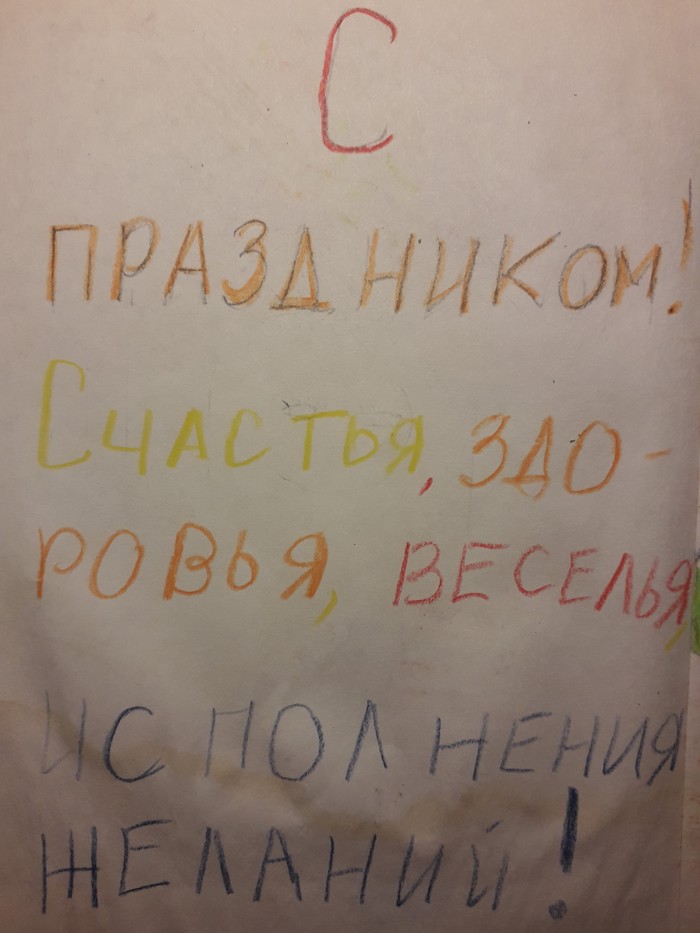 С
ПРАЗДНИКОМ!
СЧАСТЬЯ, ЗДО-
РОВЬЯ, ВЕСЕЛЬЯ,
ИСПОЛНЕНИЯ
ЖЕЛАНИЙ!